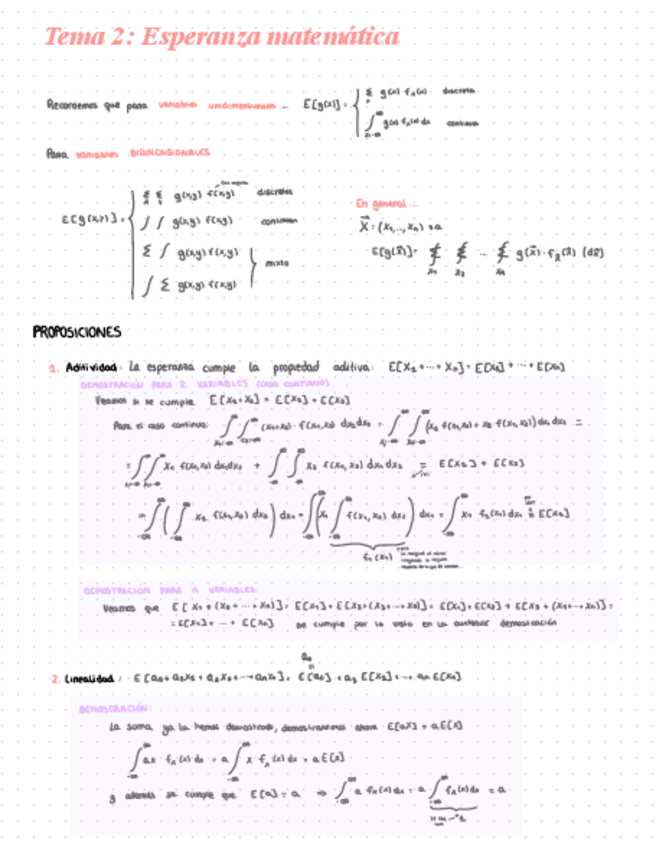 Tema 2: Esperanza matemática
Recordemos que para variables unidimensionales... E[g(x)] = { Σ g(x) f_x(x) discreta
∫ g(x) f_x(x) dx continua
Para variables BIDIMENSIONALES
E[g(x,y)] = { Σ Σ g(x,y) f(x,y) discretas
∫ ∫ g(x,y) f(x,y) continuas
Σ ∫ g(x,y) f(x,y)
∫ Σ g(x,y) f(x,y) } mixto
En general...
X⃗ = (x₁,..., xₙ) v.a
PROPOSICIONES
1. Aditividad: La esperanza cumple la propiedad aditiva: E[X₁+...+Xₙ] = E[X₁]+...+E[Xₙ]
DEMOSTRACIÓN PARA 2 VARIABLES (CASO CONTINUO)
Veamos si se cumple E[X₁+X₂] = E[X₁] + E[X₂]
Para el caso continuo: ∫∫ (x₁+x₂) · f(x₁,x₂) dx₂dx₁ = ∫∫ (x₁ f(x₁,x₂) + x₂ f(x₁,x₂)) dx₁ dx₂ =
= ∫∫ x₁ f(x₁,x₂) dx₁dx₂ + ∫∫ x₂ f(x₁,x₂) dx₁ dx₂ = E[X₁] + E[X₂]
= ∫ (∫ x₁ f(x₁,x₂) dx₂) dx₁ = ∫ (x₁ ∫ f(x₁,x₂) dx₂) dx₁ = ∫ x₁ f₁(x₁) dx₁ = E[X₁]
f₁(x₁)
DEMOSTRACIÓN PARA n VARIABLES:
Veamos que E[X₁ + (X₂+...+Xₙ)] = E[X₁] + E[X₂+(X₃+...+Xₙ)] = E[X₁] + E[X₂] + E[X₃ + (X₄+...+Xₙ)] =
= E[X₁] + ... + E[Xₙ] se cumple por lo visto en la anterior demostración
a₀
2. Linealidad: E[a₀ + a₁X₁ + a₂X₂ + ... + aₙXₙ] = E[a₀] + a₁ E[X₁] + ... aₙ E[Xₙ]
DEMOSTRACIÓN:
La suma ya la hemos demostrado, demostraremos ahora E[aX] = a E[X]
∫ ax f_x(x) dx = a ∫ x f_x(x) dx = a E[X]
y además se cumple que E[a] = a ⇒ ∫ a f_x(x) dx = a ∫ f_x(x) dx = a